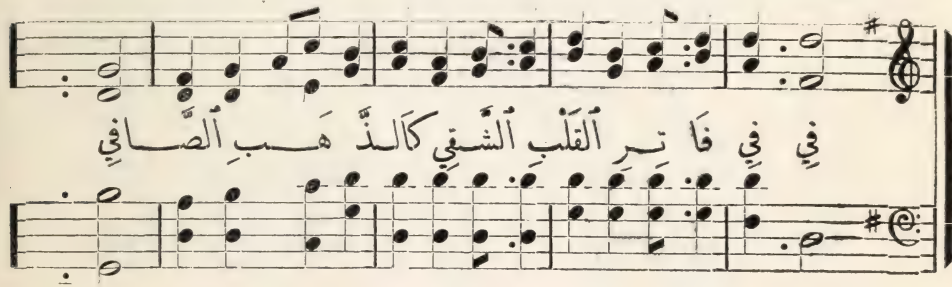 فِي فِي فَا تِـرِ ٱلقَلْبِ ٱلشَّقِي كَٱلـذَّ هَـــبِ ٱلصَّـــافِي